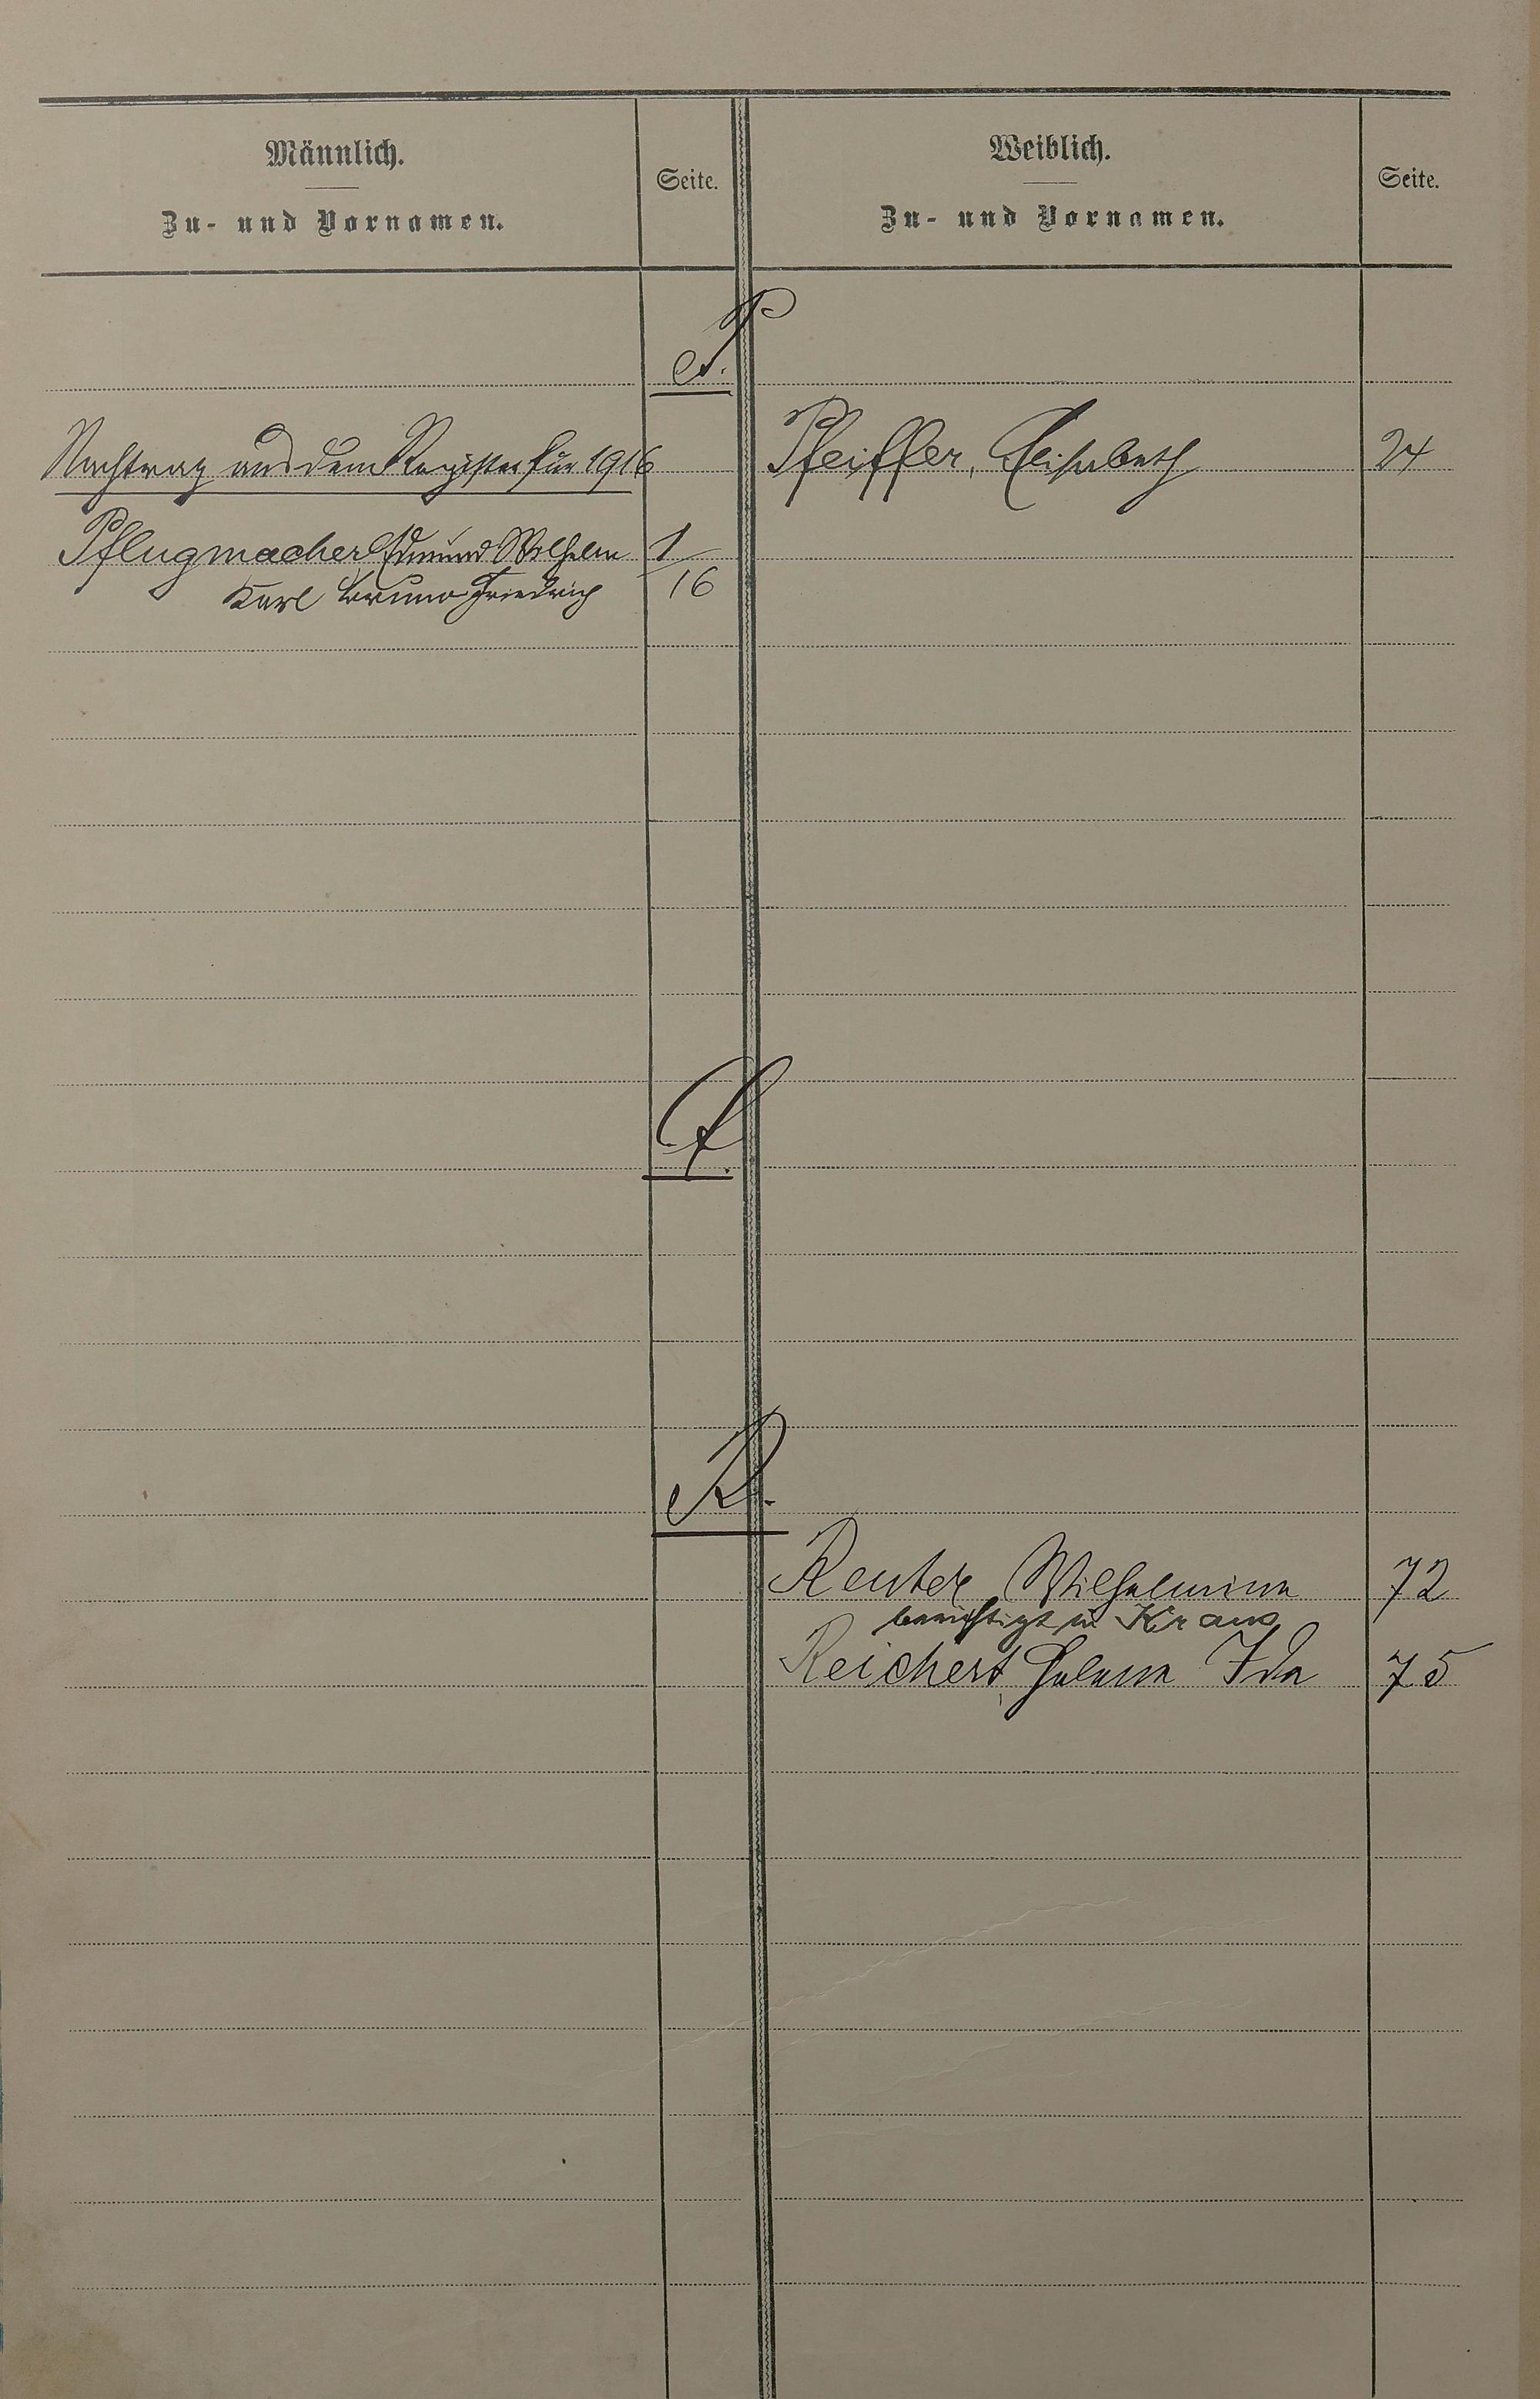 Männlich.
Zu- und Vornamen.
Seite.
Weiblich.
Zu- und Vornamen.
Seite.
P.
Nachtrag aus dem Register für 1916
Pflugmacher Edmund Wilhelm 1/16
Karl Bruno Friedrich
Pfeiffer, Elisabeth 24
Q.
R.
Reuter, Wilhelmine 72
berichtigt in Kraus
Reichert, Helene Ida 75